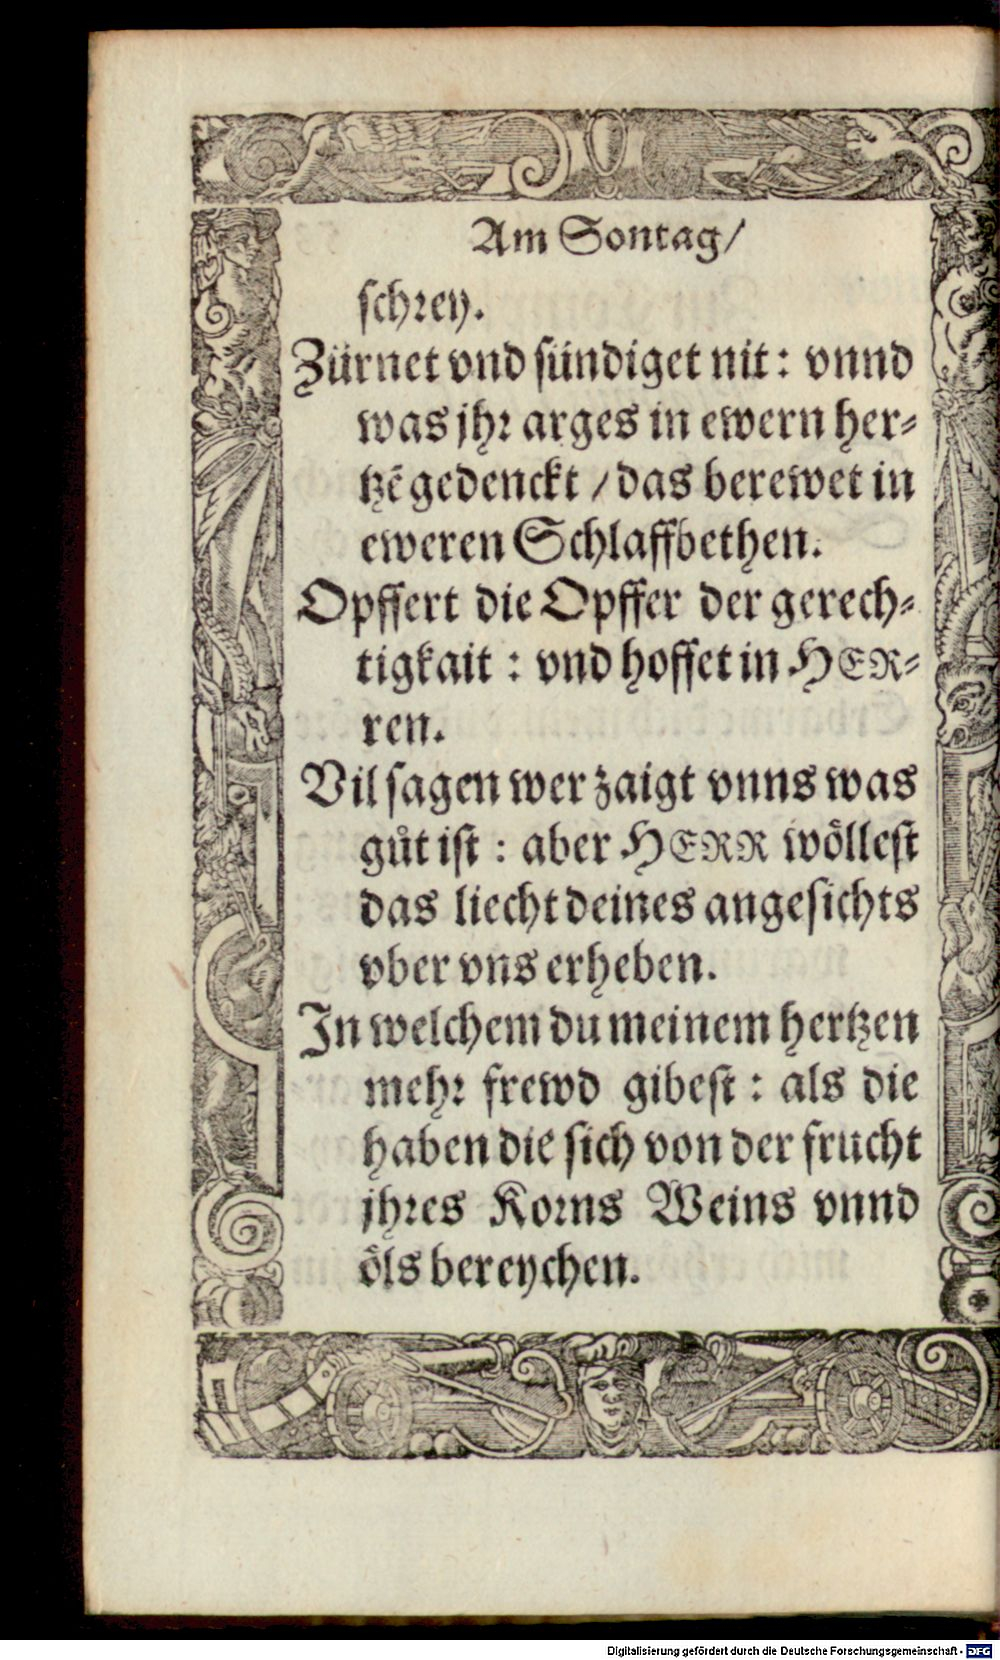 Am Sontag/
schrey.
Zürnet vnd sündiget nit: vnnd
was jhr arges in ewern her-
tzẽ gedenckt / das berewet in
eweren Schlaffbethen.
Opffert die Opffer der gerech-
tigkait: vnd hoffet in HER-
ren.
Vil sagen wer zaigt vnns was
gůt ist: aber HERR wöllest
das liecht deines angesichts
vber vns erheben.
In welchem du meinem hertzen
mehr frewd gibest: als die
haben die sich von der frucht
jhres Korns Weins vnnd
öls bereychen.
Digitalisierung gefördert durch die Deutsche Forschungsgemeinschaft - DFG